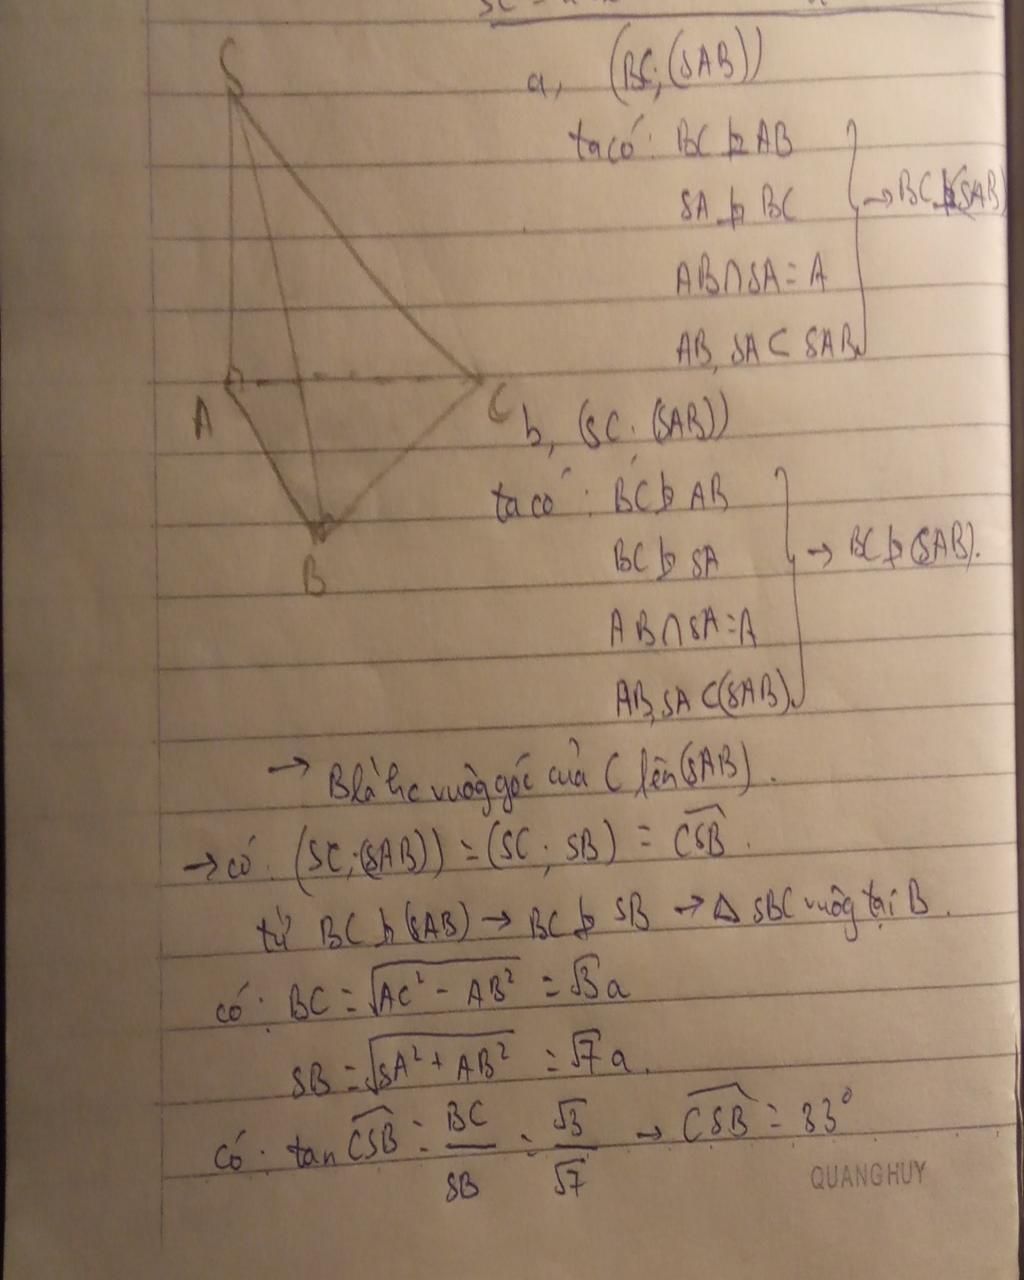 S
A
B
C
a, (BC; (SAB))
ta có: BC ⊥ AB
SA ⊥ BC → BC ⊥ (SAB)
AB ∩ SA = A
AB, SA ⊂ SAB
b, (SC; (SAB))
ta có: BC ⊥ AB
BC ⊥ SA → BC ⊥ (SAB).
AB ∩ SA = A
AB, SA ⊂ (SAB)
→ B là hc vuông góc của C lên (SAB).
→ có. (SC; (SAB)) = (SC; SB) = CSB.
từ BC ⊥ (SAB) → BC ⊥ SB → Δ SBC vuông tại B.
có: BC = √(AC² - AB²) = √3 a
SB = √(SA² + AB²) = √7 a.
có: tan CSB = BC/SB = √3/√7 → CSB = 33°
QUANG HUY